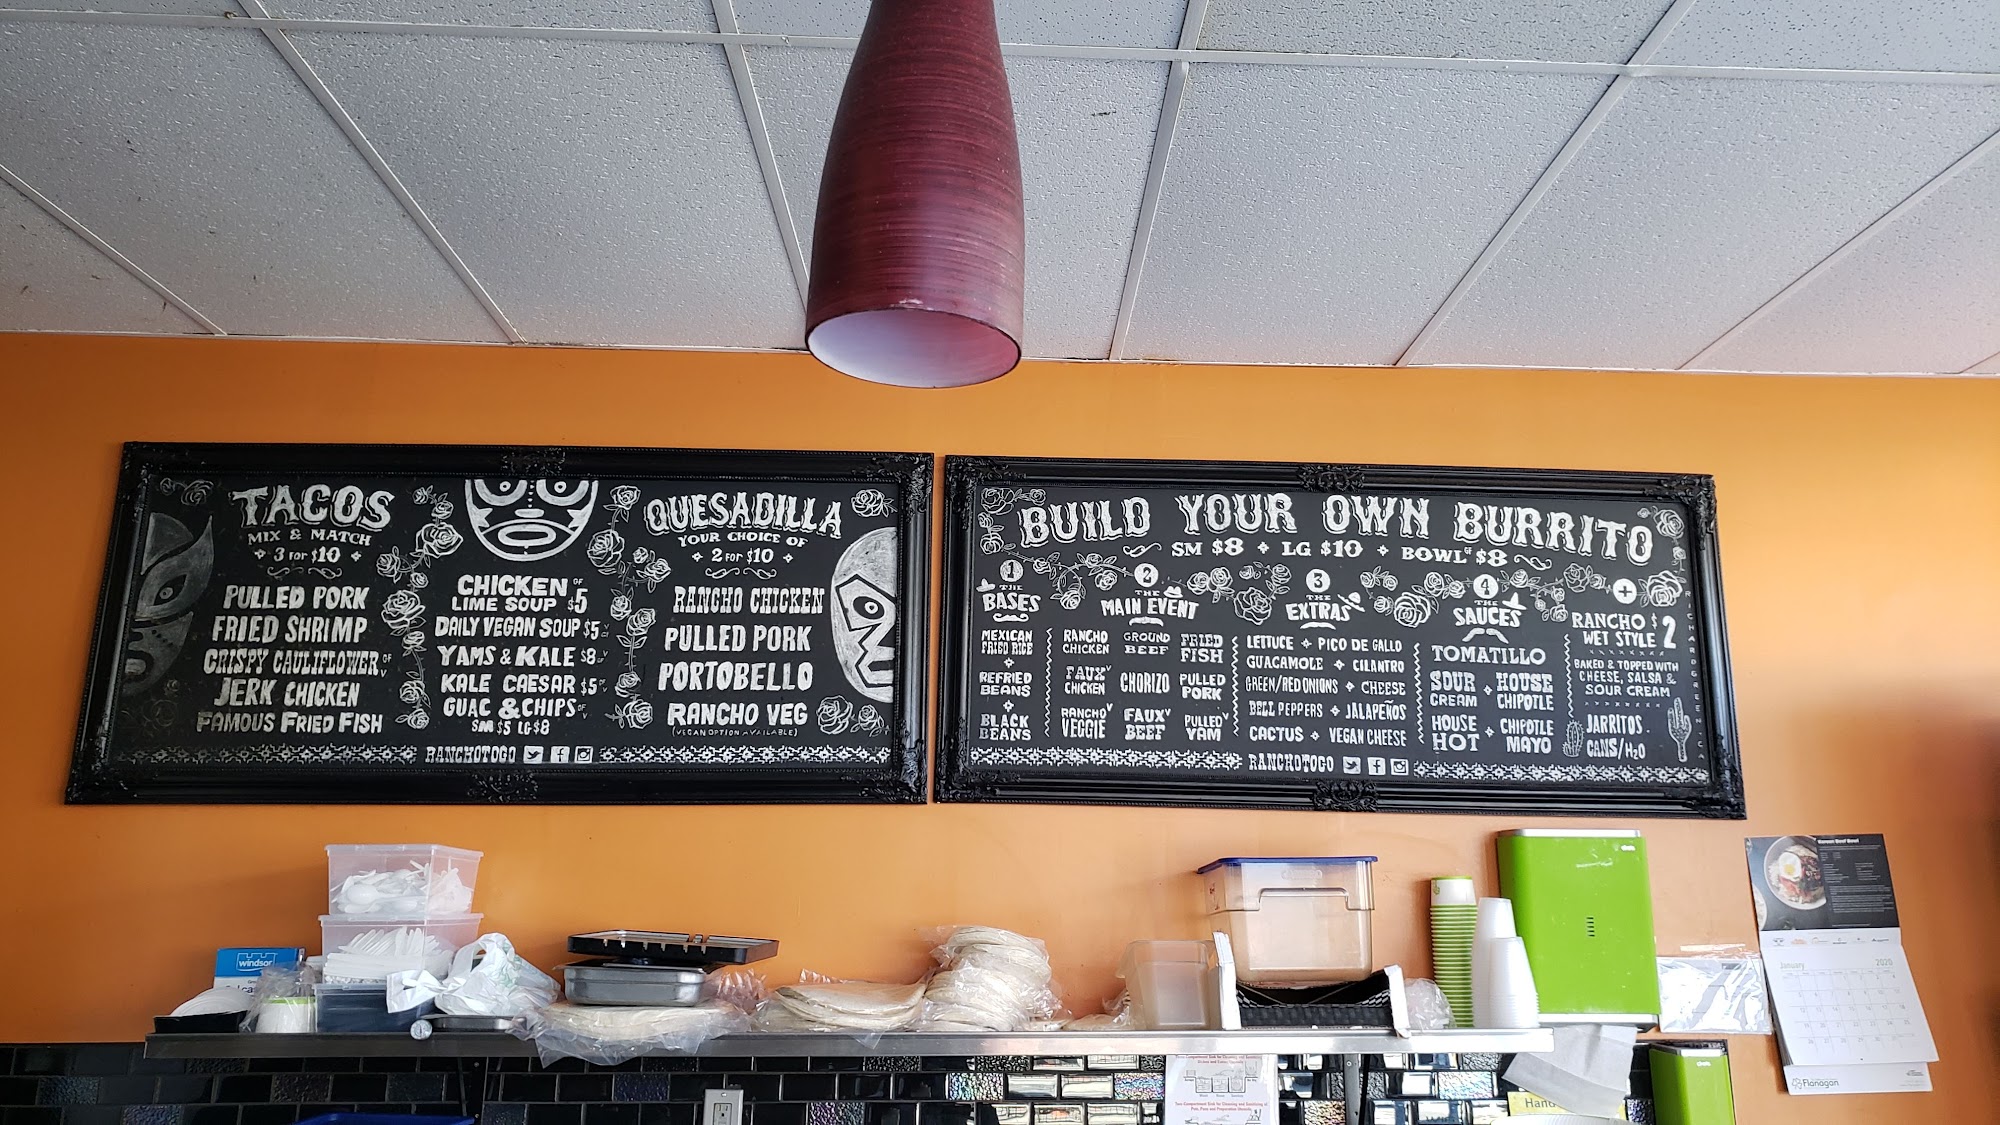 TACOS
MIX & MATCH
3 FOR $10
PULLED PORK
FRIED SHRIMP
CRISPY CAULIFLOWER GF V
JERK CHICKEN
FAMOUS FRIED FISH
CHICKEN GF
LIME SOUP $5
DAILY VEGAN SOUP $5
YAMS & KALE $8
KALE CAESAR $5
GUAC & CHIPS
SM $5 LG $8
QUESADILLA
YOUR CHOICE OF
2 FOR $10
RANCHO CHICKEN
PULLED PORK
PORTOBELLO
RANCHO VEG
(VEGAN OPTION AVAILABLE)
RANCHOTOGO
BUILD YOUR OWN BURRITO
SM $8 LG $10 BOWL GF $8
1
THE
BASES
MEXICAN
FRIED RICE
REFRIED
BEANS
BLACK
BEANS
2
THE
MAIN EVENT
RANCHO
CHICKEN
FAUX V
CHICKEN
RANCHO V
VEGGIE
GROUND
BEEF
CHORIZO
FAUX V
BEEF
FRIED
FISH
PULLED
PORK
PULLED V
YAM
3
THE
EXTRAS
LETTUCE PICO DE GALLO
GUACAMOLE CILANTRO
GREEN/RED ONIONS CHEESE
BELL PEPPERS JALAPEÑOS
CACTUS VEGAN CHEESE
4
THE
SAUCES
TOMATILLO
SOUR
CREAM
HOUSE
CHIPOTLE
HOUSE
HOT
CHIPOTLE
MAYO
+
RANCHO $2
WET STYLE
BAKED & TOPPED WITH
CHEESE, SALSA &
SOUR CREAM
JARRITOS
CANS/H2O
RANCHOTOGO
windsor
Korean Beef Bowl
January 2020
Flanagan